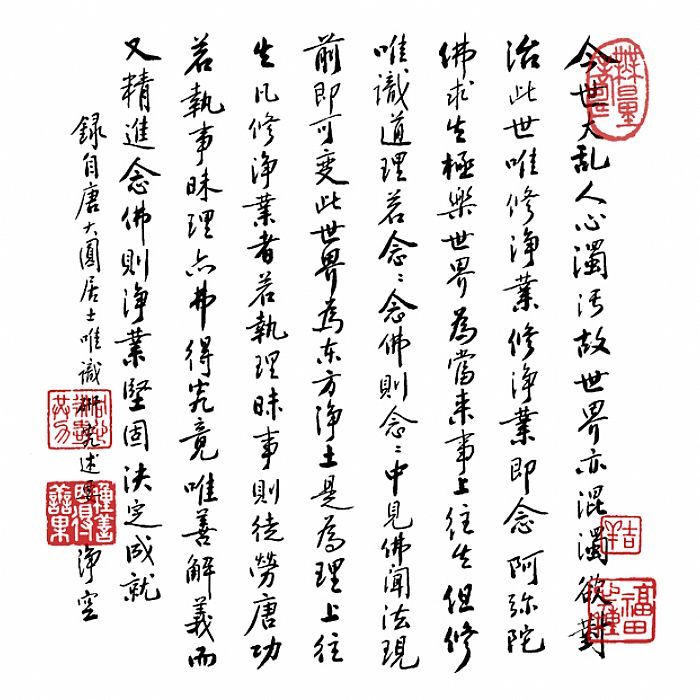 今世大乱人心濁污故世界亦混濁欲對
治此世唯修淨業修淨業即念阿弥陀
佛求生極樂世界為當来事上往生但修
唯識道理若念〻念佛則念〻中見佛聞法現
前即可变此世界為东方淨土是為理上往
生凡修淨業者若執理昧事則徒勞唐功
若執事昧理亦弗得究竟唯善解義而
又精進念佛則淨業堅固決定成就
録自唐大圓居士唯識研究述要 淨空
吉羊
福田
種善因得善果